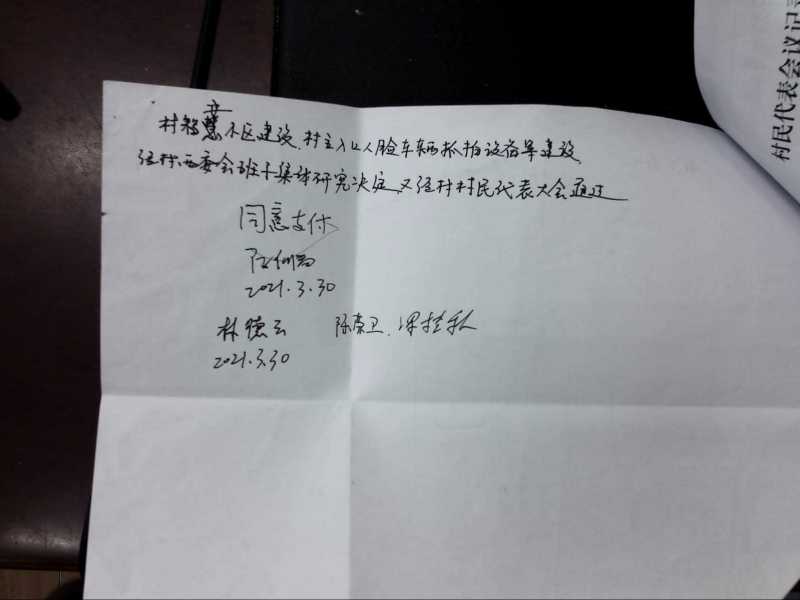 村民代表会议记
村智慧小区建设，村主入口人脸车辆抓拍设备等建设
经村两委会班子集体研究决定又经村村民代表大会通过
同意支付
2021.3.30
林德云 陈荣卫
2021.3.30